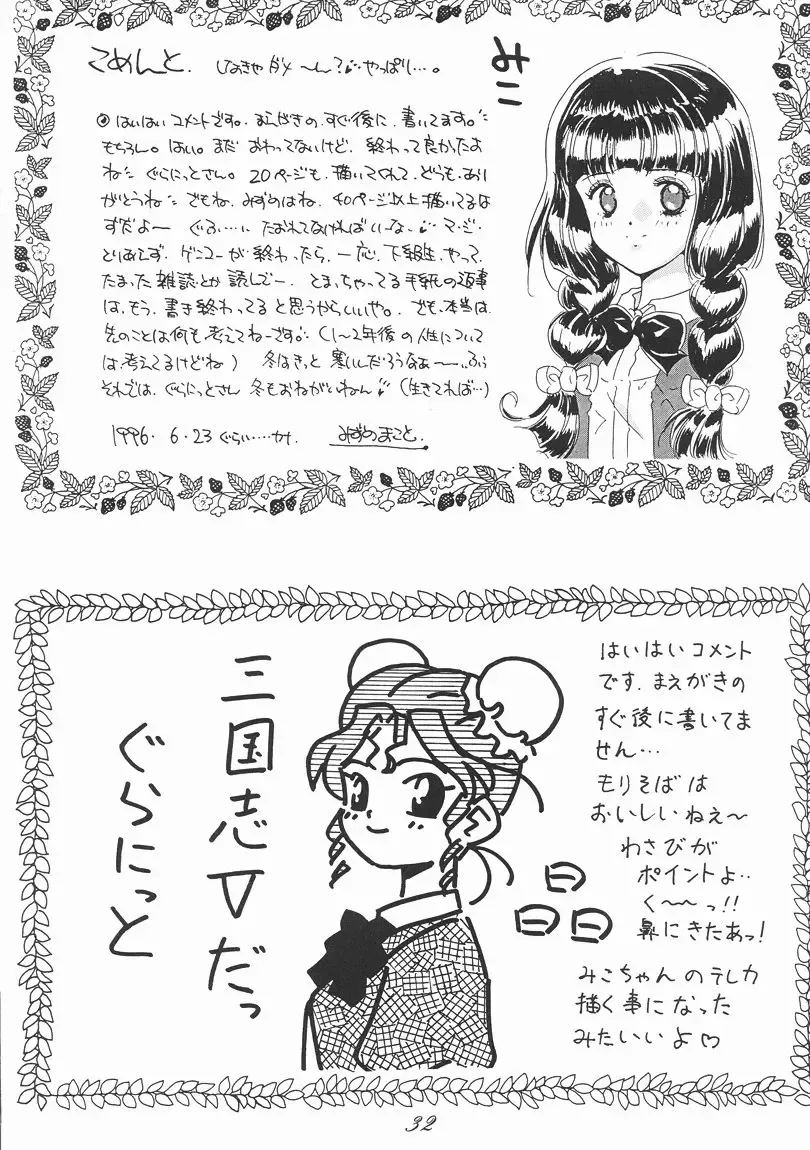 こめんと. しなきゃダメ〜ん?やっぱり…。
みこ
はいはいコメントです。まえがきの、すぐ後に、書いてます。
もちろん。はい。まだ おわってないけど、終わって良かったよ
ね ぐらにっとさん。20ページも、描いてくれて、どうも、あり
がとうね でもね、みずのはね、40ページ以上描いてるは
ずだよー ぐふ…、たおれてなければいーな、マ・ジ・
とりあえず、ゲンコーが終わったら、一応、下級生、やって、
たまった雑誌とか読んでー、とまっちゃってる手紙の返事
は、もう、書き終わってると思うからいいや。でも、本当は、
先のことは何も考えてねーです (1〜2年後の人生について
は考えてるけどね) 冬はきっと寒いんだろうなぁ〜、ふぅ
それでは、ぐらにっとさん 冬もおねがいねん (生きてれば…)
1996. 6.23ぐらい…かな. みずのまこと.
三国志Vだっ
ぐらにっと
はいはいコメント
です。まえがきの
すぐ後に書いてま
せん…
もりそばは
おいしいねえ〜
わさびが
ポイントよ‥
く〜〜っ!!
鼻にきたあっ!
みこちゃんのテレカ
描く事になった
みたいよ♡
32